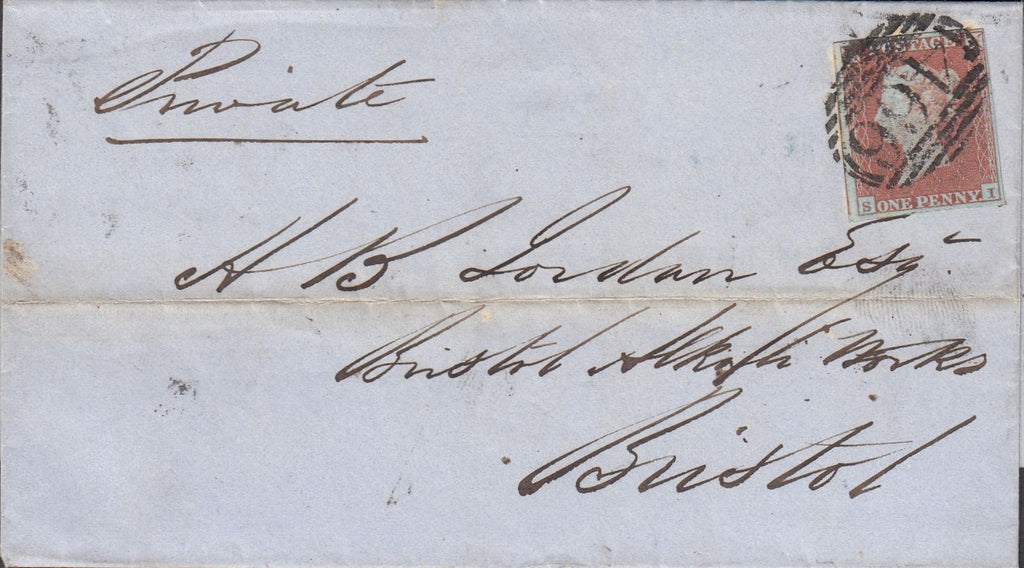 Private
POSTAGE
166
S ONE PENNY I
H B Jordan Esqr
Bristol Alkali Works
Bristol